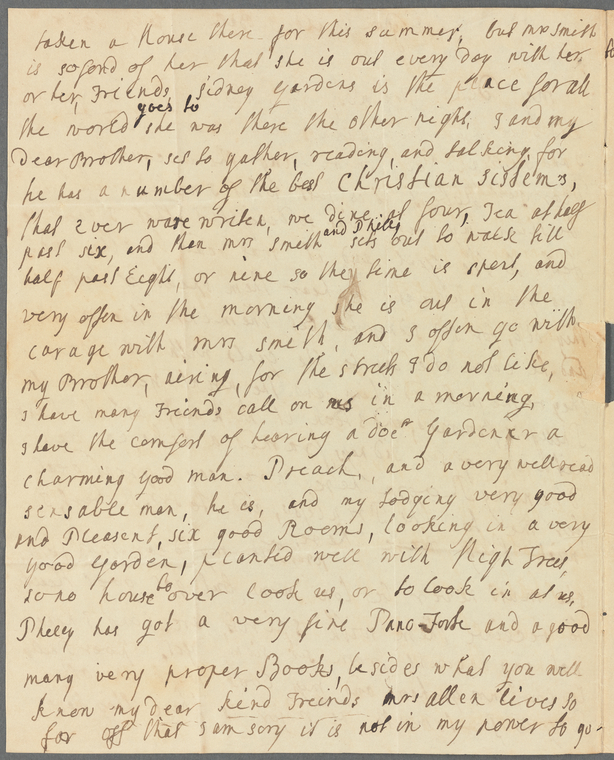 taken a House there for this summer, but mrs smith
is so fond of her that she is out every day with her
or her, Friends, sidney gardens is the place for all
goes to
the world she was there the other night, I and my
Dear Brother, sets to gather, reading, and talking, for
he has a number of the best Christian Sistems,
that Ever ware writen, we dine at four, Tea at half
past six, and then mrs smith and Philly sets out to walk till
half past Eight, or nine so the time is spent, and
very offen in the morning she is out in the
carage with mrs smith, and I offen go with
my Brother, airing, for the streets I do not like,
I have many Friends call on me in a morning,
I have the comfort of hearing a doctr Gardener a
charming good man. Preach, and a very well read
sensable man, he is, and my Lodging very good
and Pleasent, six good Rooms, looking in a very
good Garden, planted well with High Trees,
so no house to over look us, or to look in at us,
Philly has got a very fine Piano Forte and a good
many very proper Books, besides what you well
know my dear kind Freinds mrs allen lives so
far off that I am sory it is not in my power to go-